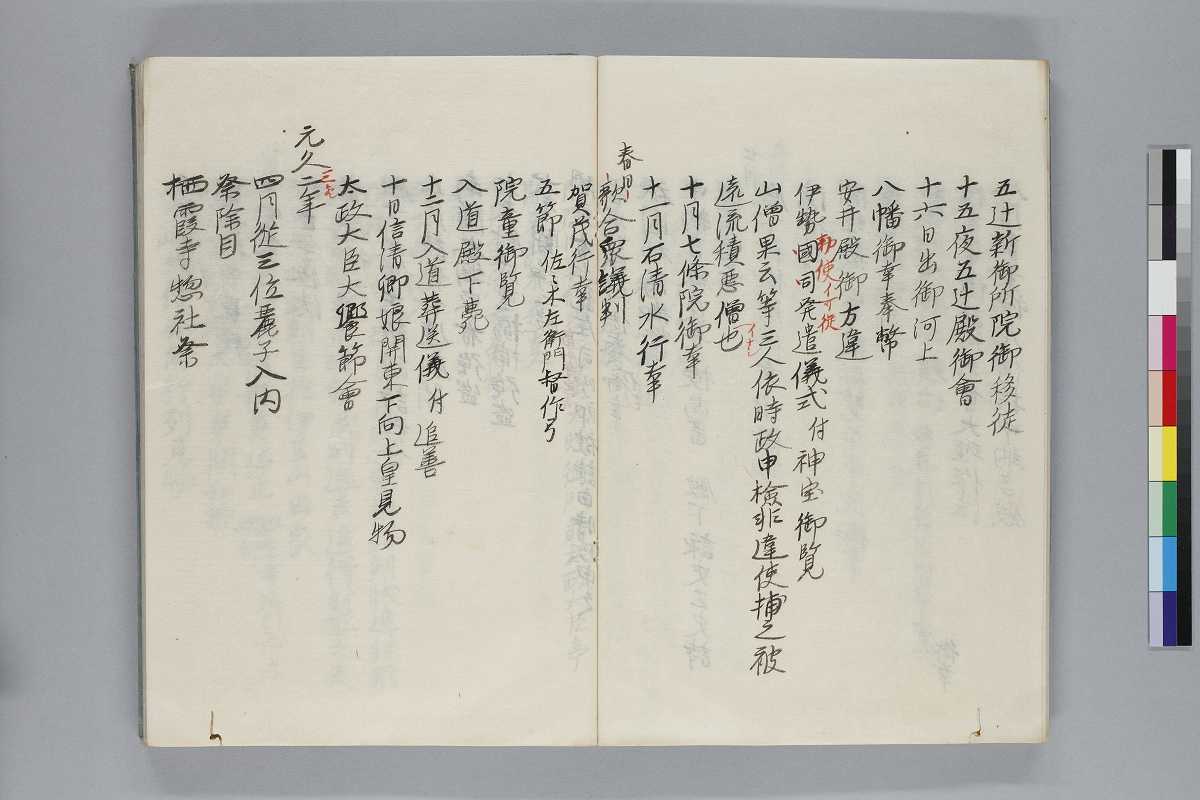 五辻新御所院御移徙
十五夜五辻殿御會
十六日出御河上
八幡御幸奉幣
安井殿御方違
勅使イ丁従
伊勢國司発遣儀式付神宝御覧
山僧果云等三人依時政申檢非違使捕之被
遠流積悪僧也
イナシ
十月七條院御幸
十一月石清水行幸
春日
歌合衆議判
賀茂行幸
五節佐々木左衛門督作
院童御覧
入道殿下薨
十二月入道葬送儀付追善
十日信清卿娘関東下向上皇見物
太政大臣大饗節會
元久二年
四月從三位麗子入内
祭除目
栖霞寺惣社祭